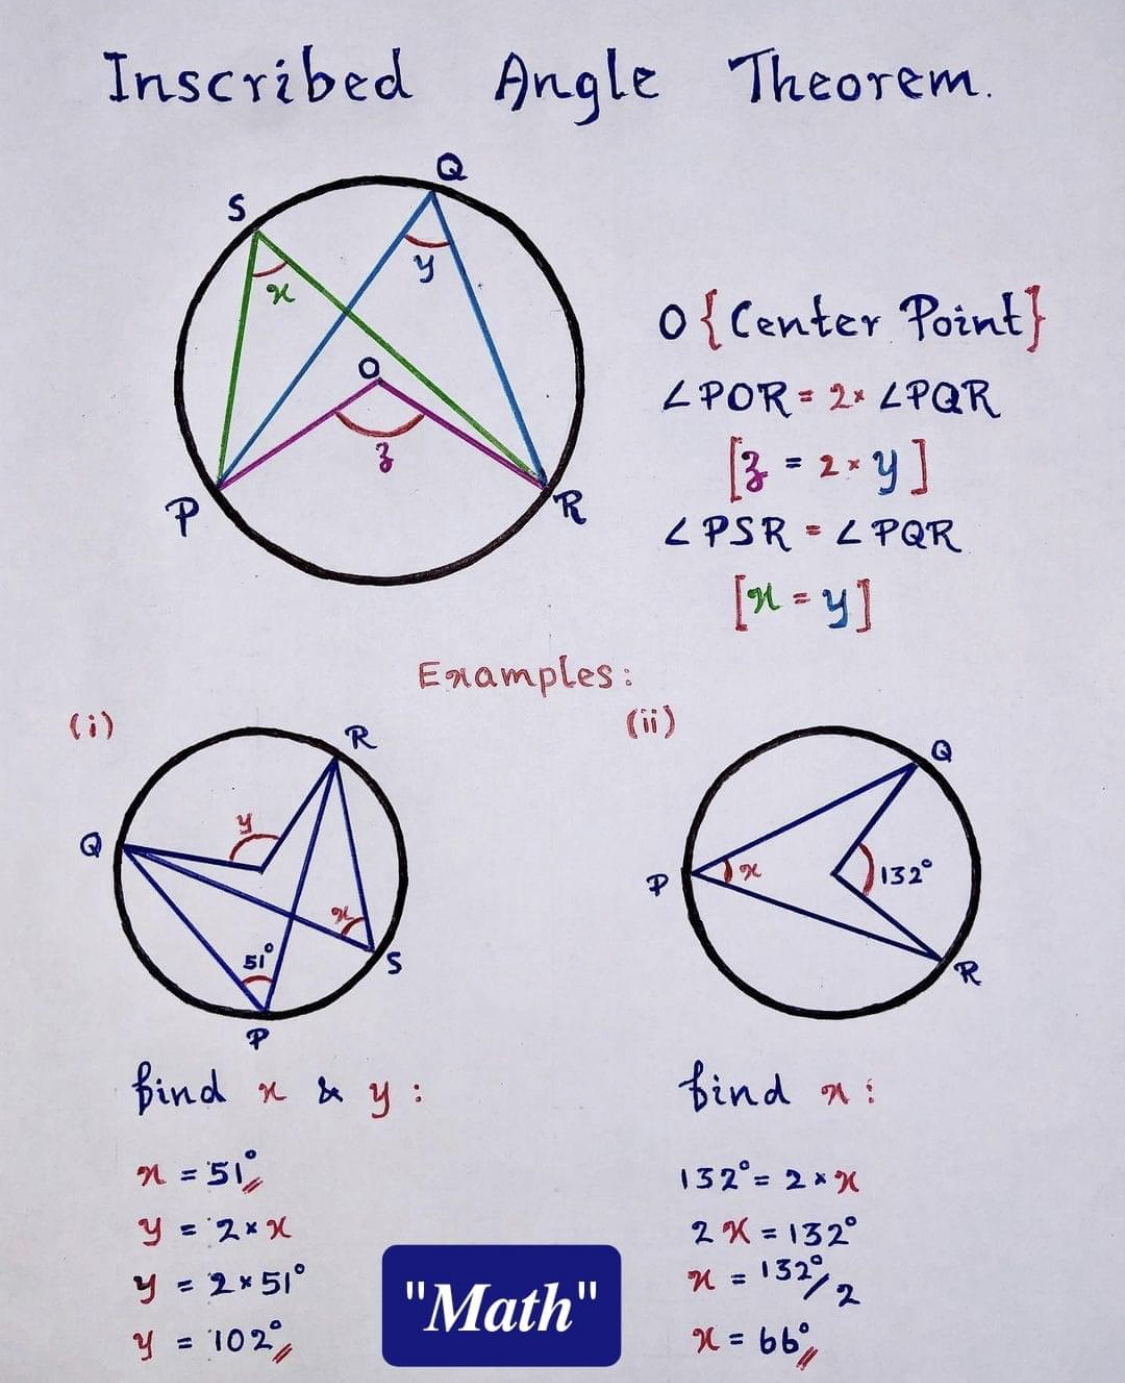 Inscribed Angle Theorem.
Q
S
x
y
O
z
P
R
O {Center Point}
∠POR = 2× ∠PQR
[z = 2 × y]
∠PSR = ∠PQR
[x = y]
Examples:
(i)
R
Q
y
x
51°
S
P
find x & y :
x = 51°
y = 2 × x
y = 2 × 51°
y = 102°
(ii)
Q
P
x
132°
R
find x :
132° = 2 × x
2x = 132°
x = 132°/2
x = 66°
"Math"